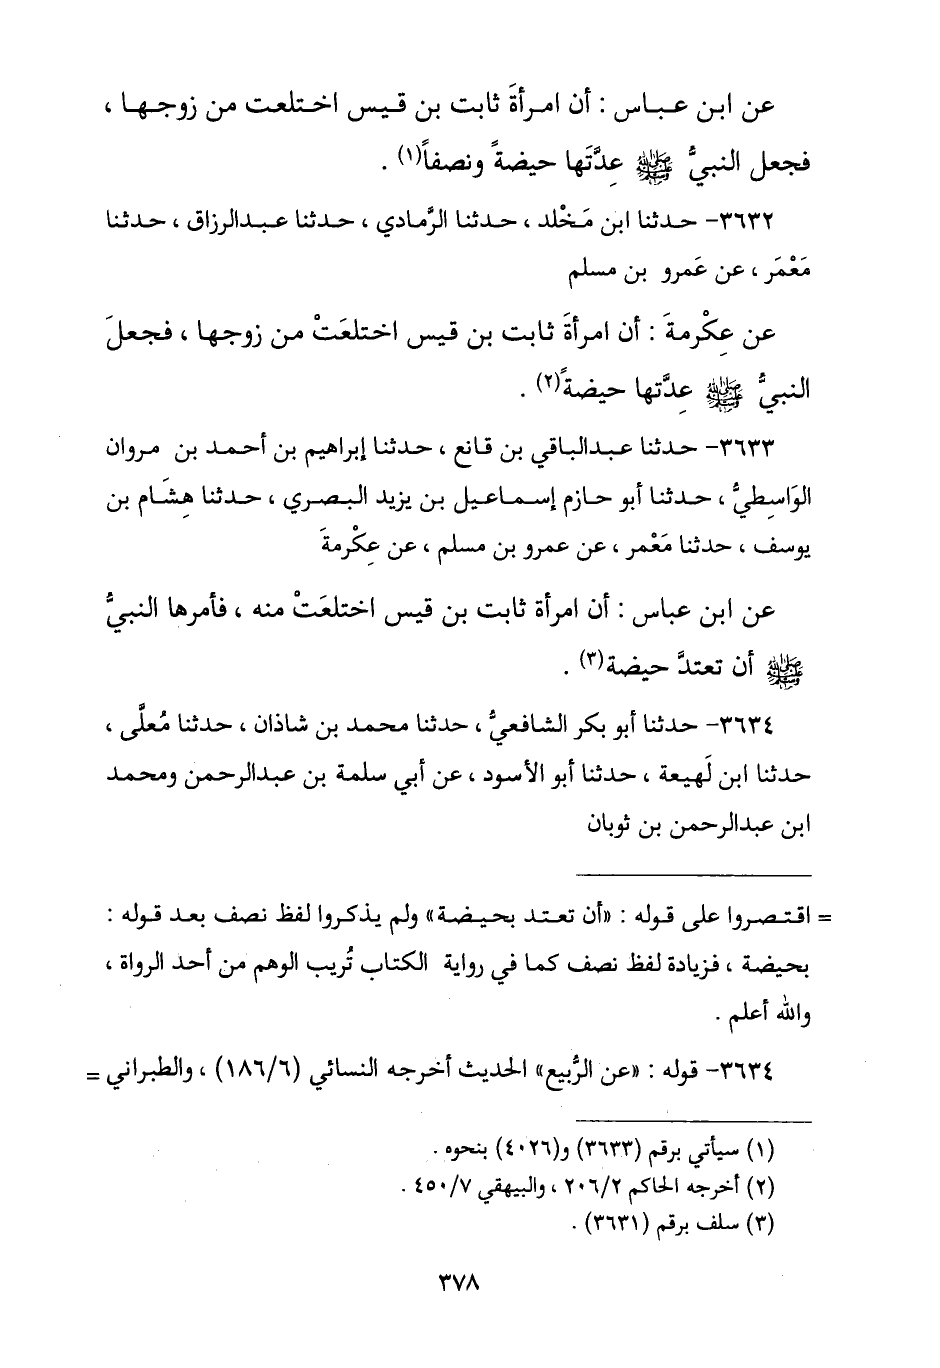 عن ابن عباس : أن امرأةَ ثابت بن قيس اختلعت من زوجها ،
فجعل النبيُّ ﷺ عِدَّتَها حيضةً ونصفاً(١) .
٣٦٣٢- حدثنا ابن مَخْلد ، حدثنا الرَّمادي ، حدثنا عبدالرزاق ، حدثنا
مَعْمَر ، عن عَمرو بن مسلم
عن عِكْرمةَ : أن امرأةَ ثابت بن قيس اختلعَتْ من زوجها ، فجعلَ
النبيُّ ﷺ عِدَّتها حيضةً(٢) .
٣٦٣٣- حدثنا عبدالباقي بن قانع ، حدثنا إبراهيم بن أحمد بن مروان
الوَاسِطيُّ ، حدثنا أبو حازم إسماعيل بن يزيد البصري ، حدثنا هِشَام بن
يوسف ، حدثنا مَعْمر ، عن عمرو بن مسلم ، عن عِكْرمةَ
عن ابن عباس : أن امرأة ثابت بن قيس اختلعَتْ منه ، فأمرها النبيُّ
ﷺ أن تعتدَّ حيضة(٣) .
٣٦٣٤- حدثنا أبو بكر الشافعيُّ ، حدثنا محمد بن شاذان ، حدثنا مُعلَّى ،
حدثنا ابن لَهيعة ، حدثنا أبو الأسود ، عن أبي سلمة بن عبدالرحمن ومحمد
ابن عبدالرحمن بن ثوبان
= اقتصروا على قوله : «أن تعتد بحيضة» ولم يذكروا لفظ نصف بعد قوله :
بحيضة ، فزيادة لفظ نصف كما في رواية الكتاب تُريب الوهم من أحد الرواة ،
والله أعلم .
٣٦٣٤- قوله : «عن الرُّبيع» الحديث أخرجه النسائي (١٨٦/٦) ، والطبراني =
(١) سيأتي برقم (٣٦٣٣) و(٤٠٢٦) بنحوه .
(٢) أخرجه الحاكم ٢٠٦/٢ ، والبيهقي ٤٥٠/٧ .
(٣) سلف برقم (٣٦٣١) .
٣٧٨